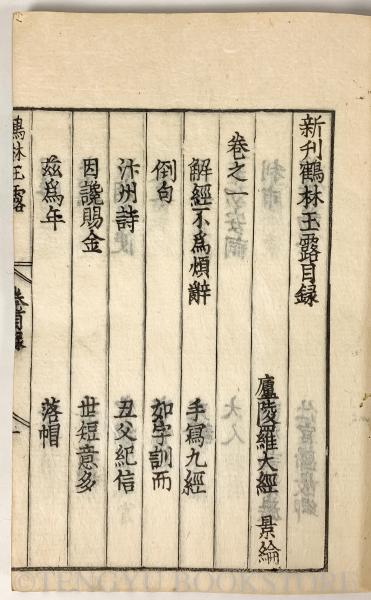 新刊鶴林玉露目録
廬陵羅大經 景綸
卷之一
解經不爲煩辭 手寫九經
倒句 如字訓而
汴州詩 丑父紀信
因讒賜金 世短意多
茲爲年 落帽
鶴林玉露
©TENGYU BOOK STORE